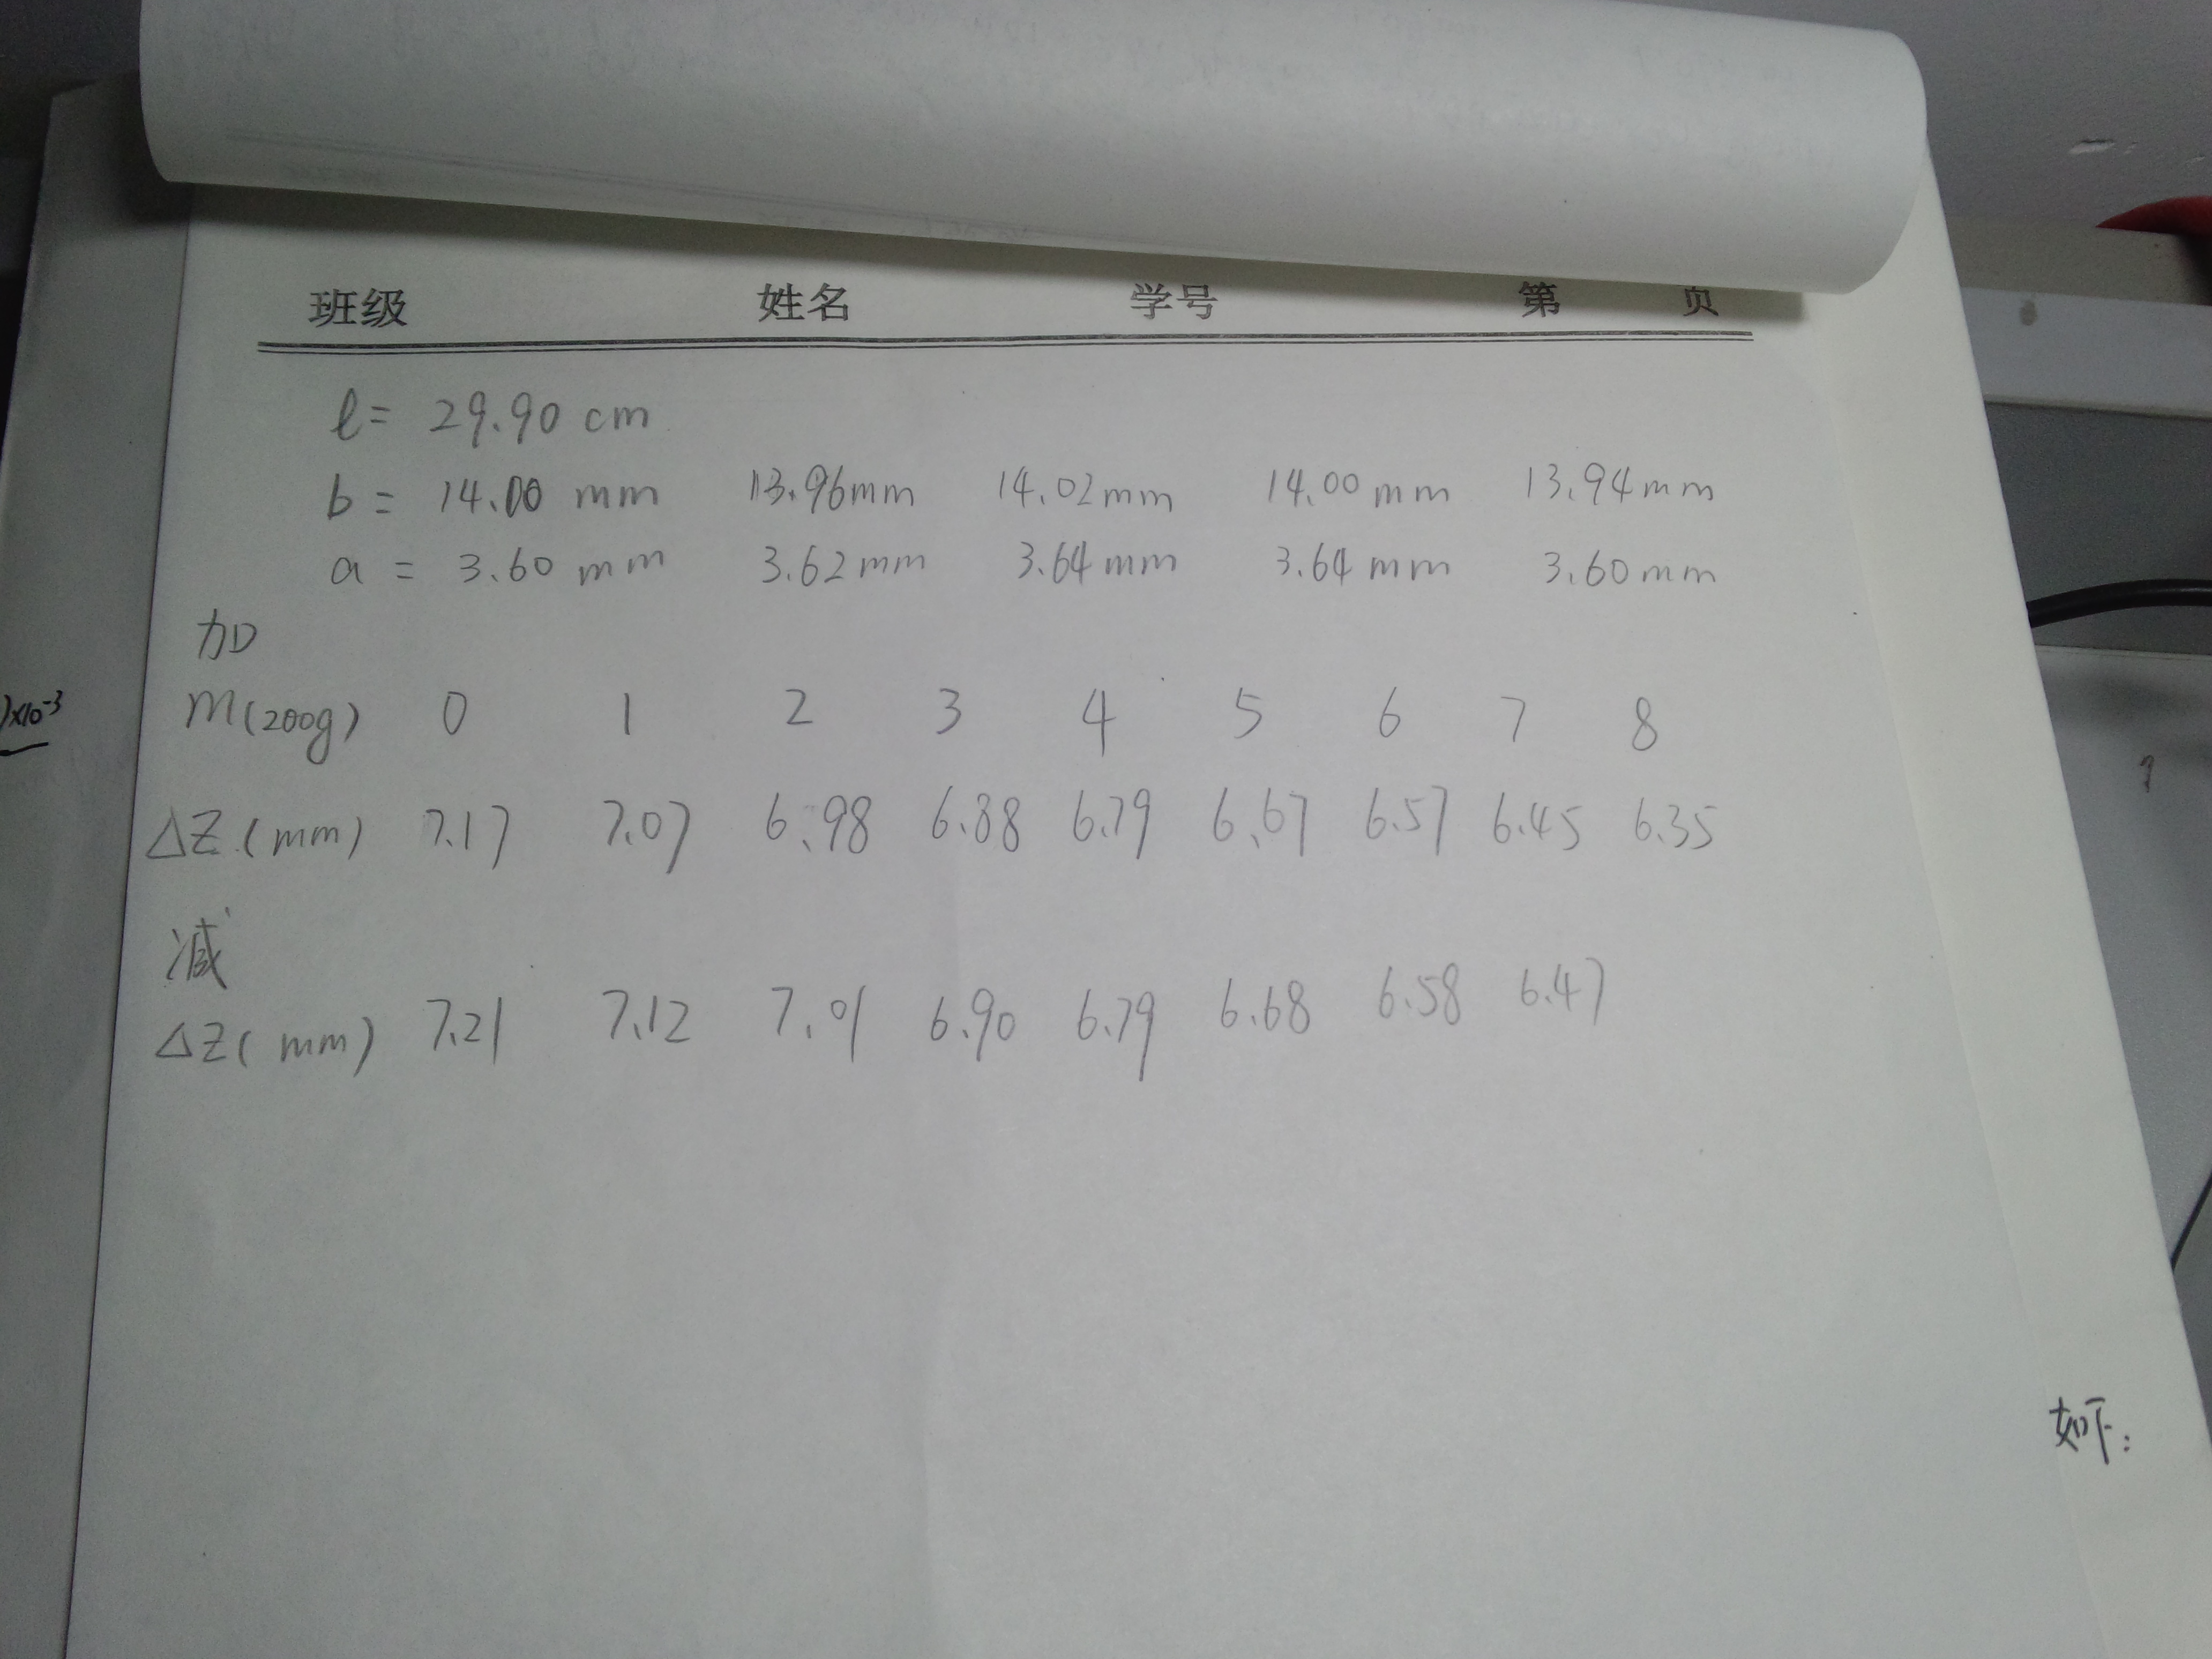 班级 姓名 学号 第 页
l = 29.90 cm
b = 14.00 mm 13.96mm 14.02mm 14.00 mm 13.94mm
a = 3.60 mm 3.62mm 3.64mm 3.64 mm 3.60mm
加
m(200g) 0 1 2 3 4 5 6 7 8
)×10⁻³
ΔZ (mm) 7.17 7.07 6.98 6.88 6.79 6.67 6.57 6.45 6.35
减
ΔZ( mm) 7.21 7.12 7.01 6.90 6.79 6.68 6.58 6.47
如下: